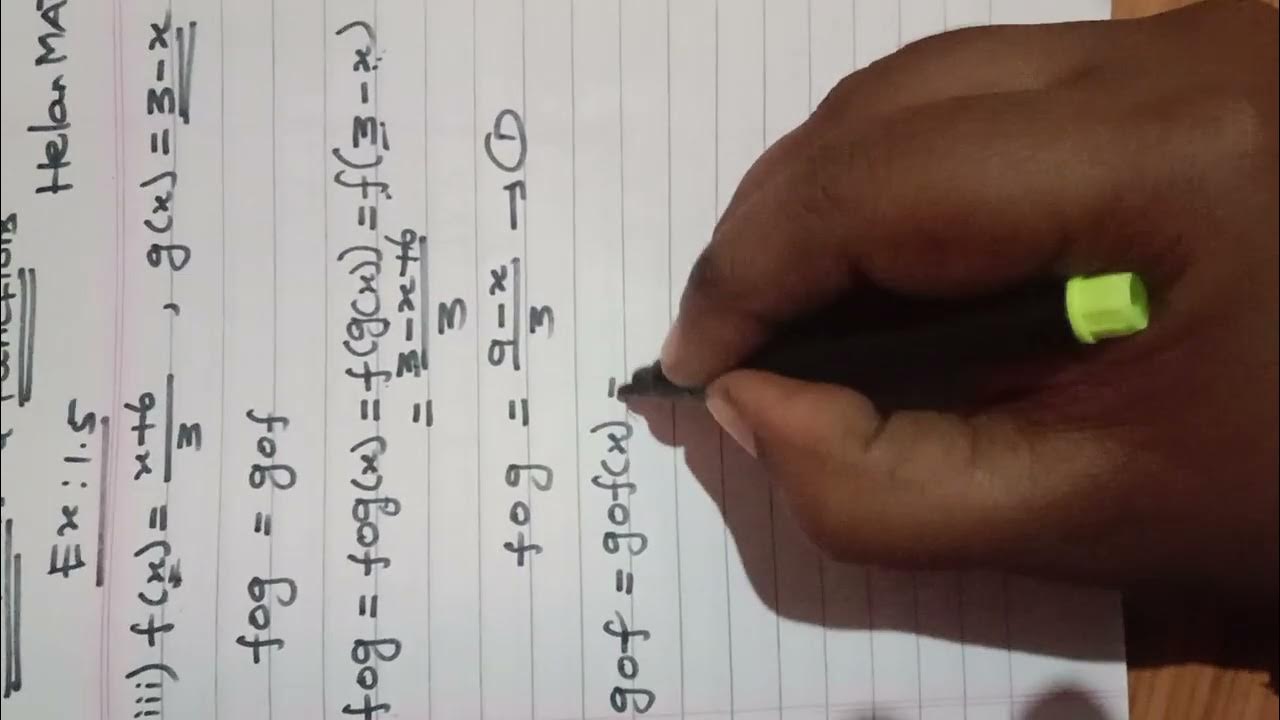 Functions
Ex: 1.5 Helan MA
iii) f(x) = x+6/3 , g(x) = 3-x
fog = gof
fog = fog(x) = f(g(x)) = f(3-x)
= 3-x+6/3
fog = 9-x/3 → ①
gof = gof(x) =